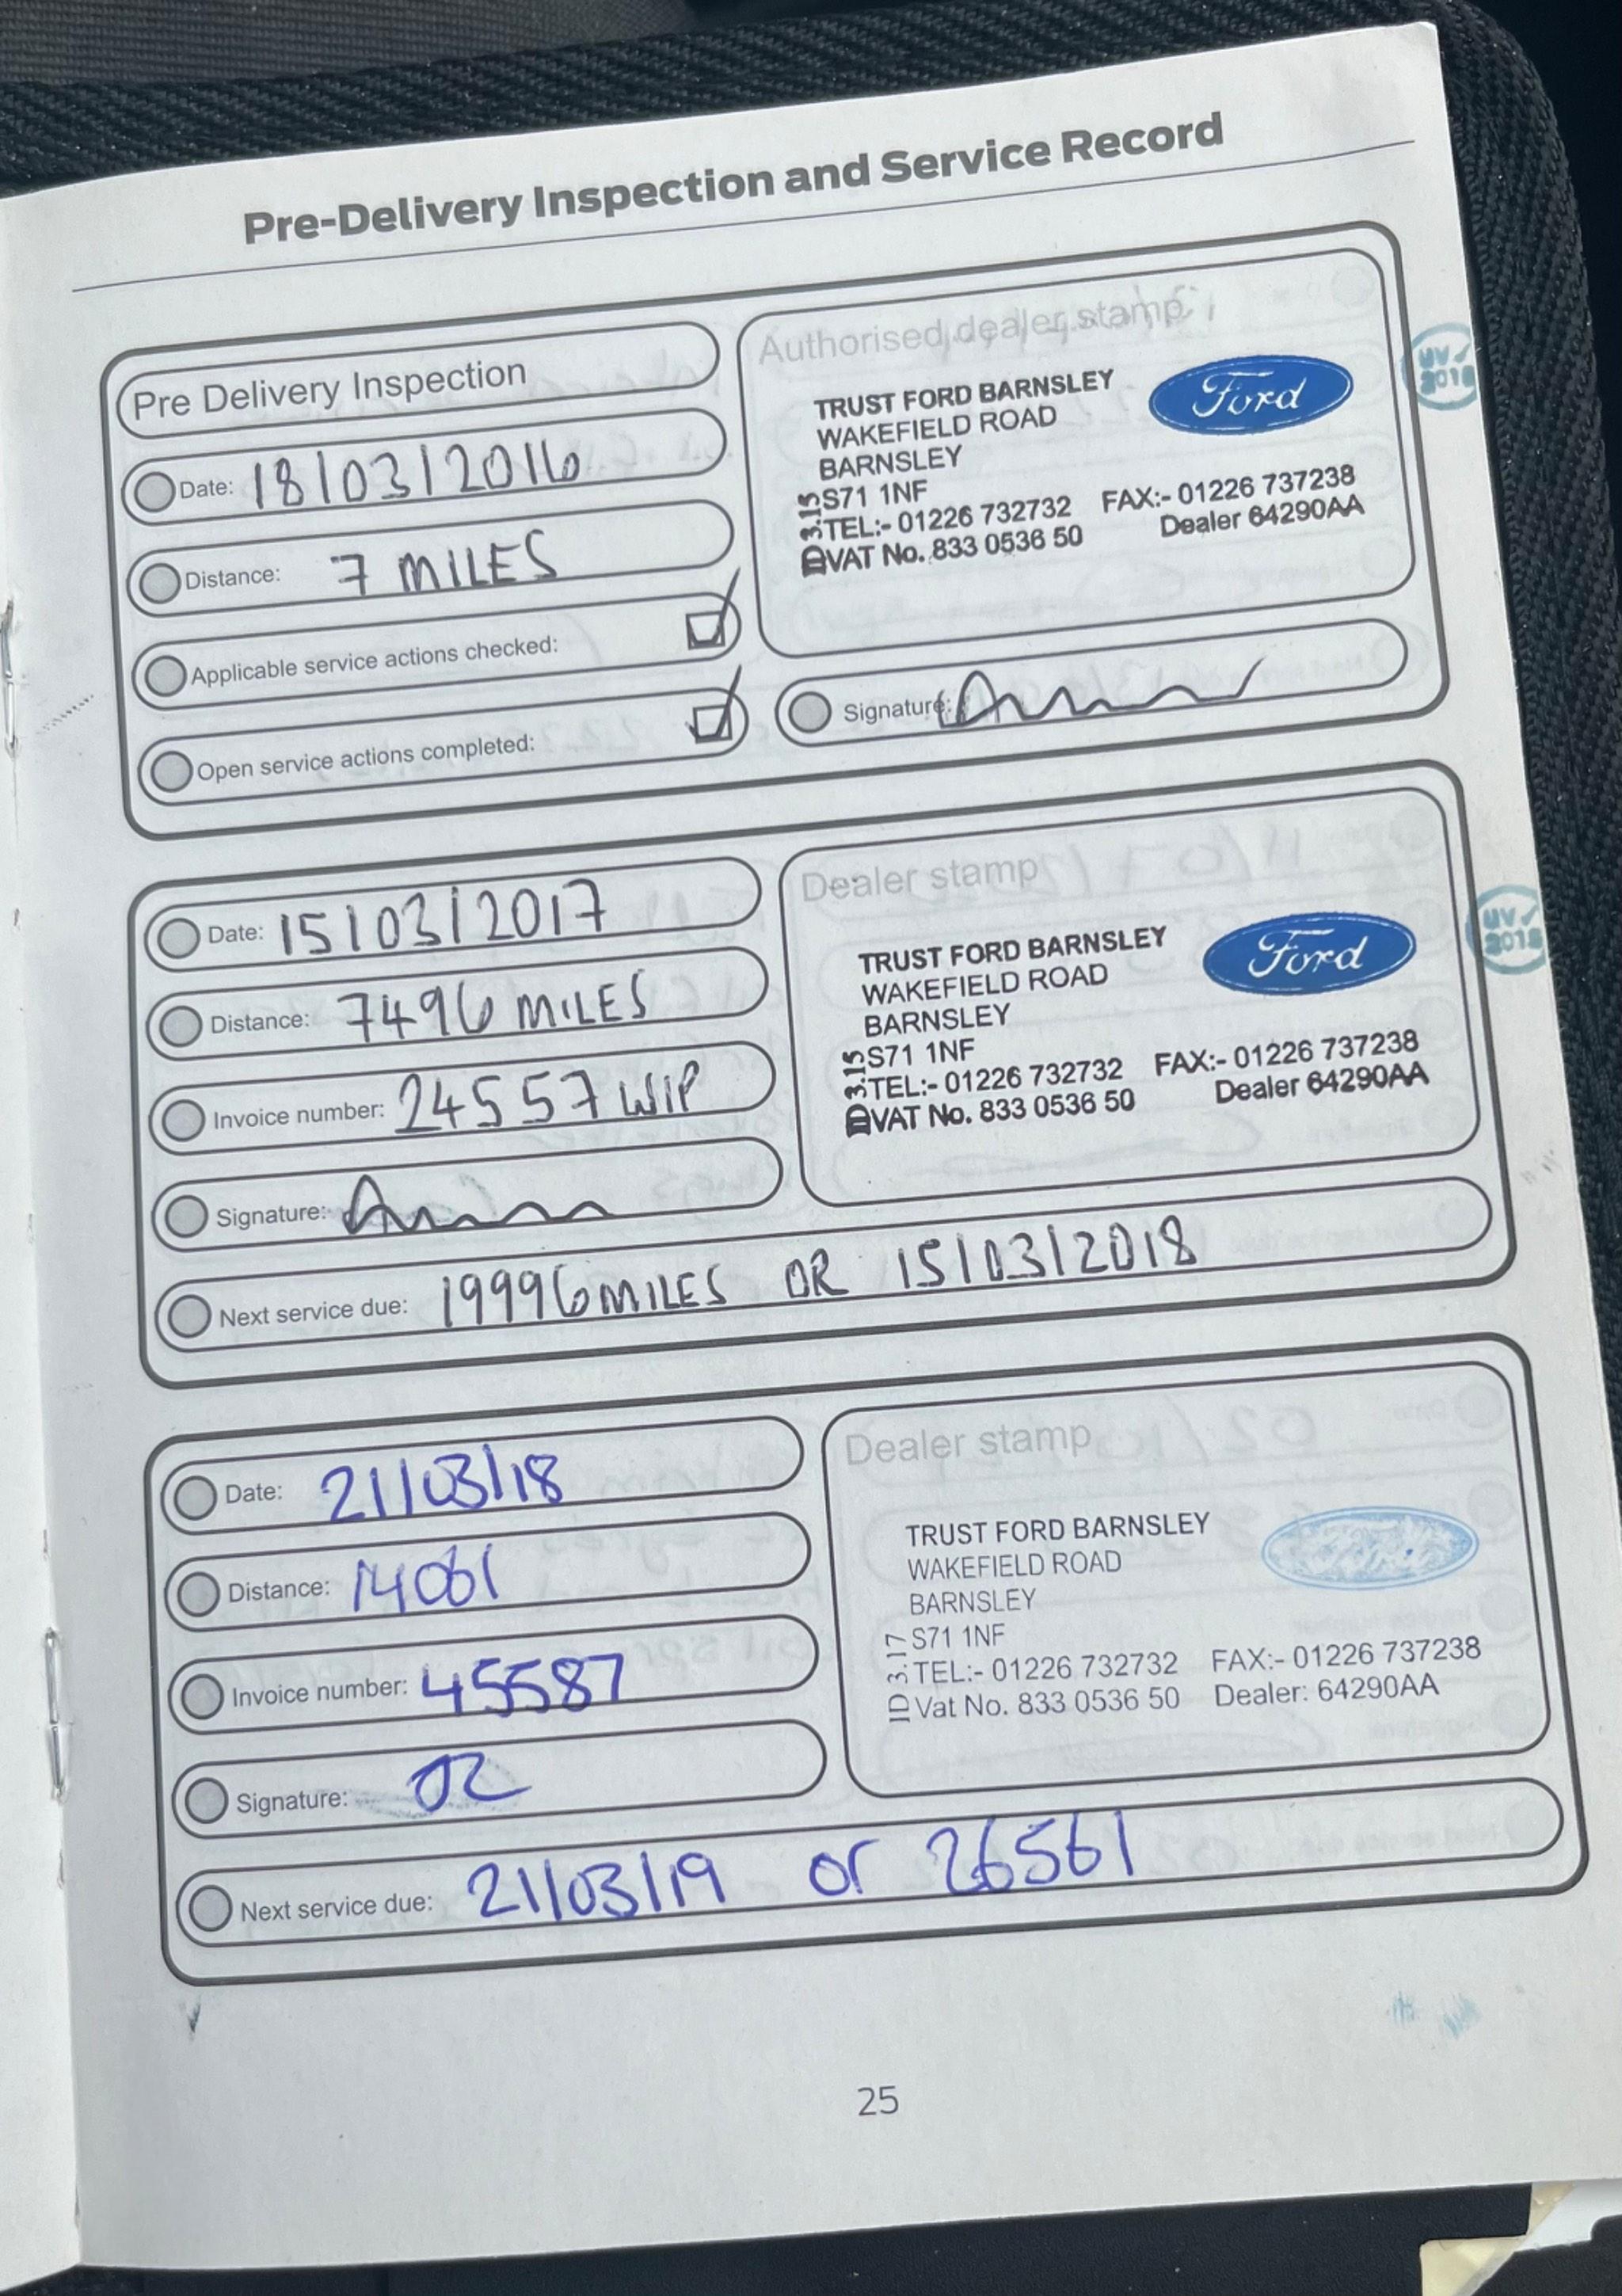 Pre-Delivery Inspection and Service Record
Pre Delivery Inspection
Date: 18/03/2016
Distance: 7 MILES
Applicable service actions checked:
Open service actions completed:
Authorised dealer stamp
TRUST FORD BARNSLEY
WAKEFIELD ROAD
BARNSLEY
S71 1NF
TEL:- 01226 732732 FAX:- 01226 737238
VAT No. 833 0536 50 Dealer 64290AA
ID 3.15
Ford
UV
2018
Signature:
Date: 15/03/2017
Distance: 7496 MILES
Invoice number: 24557 WIP
Signature:
Next service due: 19996 MILES OR 15/03/2018
Dealer stamp
TRUST FORD BARNSLEY
WAKEFIELD ROAD
BARNSLEY
S71 1NF
TEL:- 01226 732732 FAX:- 01226 737238
VAT No. 833 0536 50 Dealer 64290AA
ID 3.15
Ford
UV
2018
Date: 21/03/18
Distance: 14061
Invoice number: 45587
Signature:
Next service due: 21/03/19 or 26561
Dealer stamp
TRUST FORD BARNSLEY
WAKEFIELD ROAD
BARNSLEY
S71 1NF
TEL:- 01226 732732 FAX:- 01226 737238
Vat No. 833 0536 50 Dealer: 64290AA
ID 3.17
Ford
25